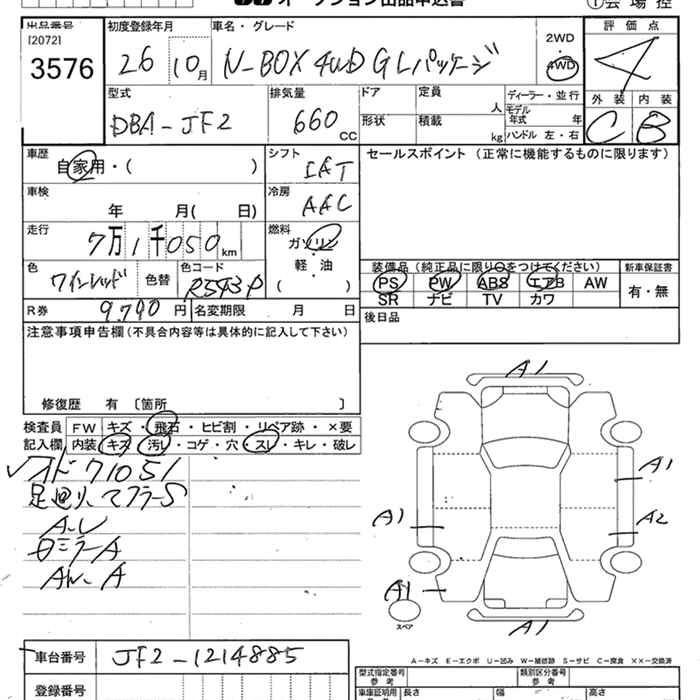 オークション出品申込書
①会場控
出品番号
[2072]
3576
初度登録年月
26 10月
車名・グレード
N-BOX 4WD GLパッケージ
2WD
4WD
評価点
4
型式
DBA-JF2
排気量
660 CC
ドア
定員
人
形状
積載
kg
ディーラー・並行
モデル年式 年
ハンドル 左・右
外装 内装
C B
車歴
自家用・( )
シフト
IAT
セールスポイント(正常に機能するものに限ります)
車検
年 月( 日)
冷房
AAC
走行
7万1千050km
燃料
ガソリン
・
軽・油
( )
色
ワインレッド
色替
色コード
R543P
装備品(純正品に限り○をつけてください)
PS PW ABS エアB AW
SR ナビ TV カワ
新車保証書
有・無
R券
9,790 円
名変期限 月 日
後日品
注意事項申告欄(不具合内容等は具体的に記入して下さい)
修復歴 有 〔箇所 〕
検査員 FW キズ・飛石・ヒビ割・リペア跡・×要
記入欄 内装 キズ・汚レ・コゲ・穴・スレ・キレ・破レ
オド71051
足廻り マフラーS
A,U
ミラーA
AW、A
A1
A1
A1 A2
A1
スペア
A1
A-キズ E-エクボ U-凹み W-補修跡 S-サビ C-腐食 XX-交換済
車台番号
JF2-1214885
登録番号
型式指定番号
参考
類別区分番号
参考
車庫証明用
長さ 幅 高さ